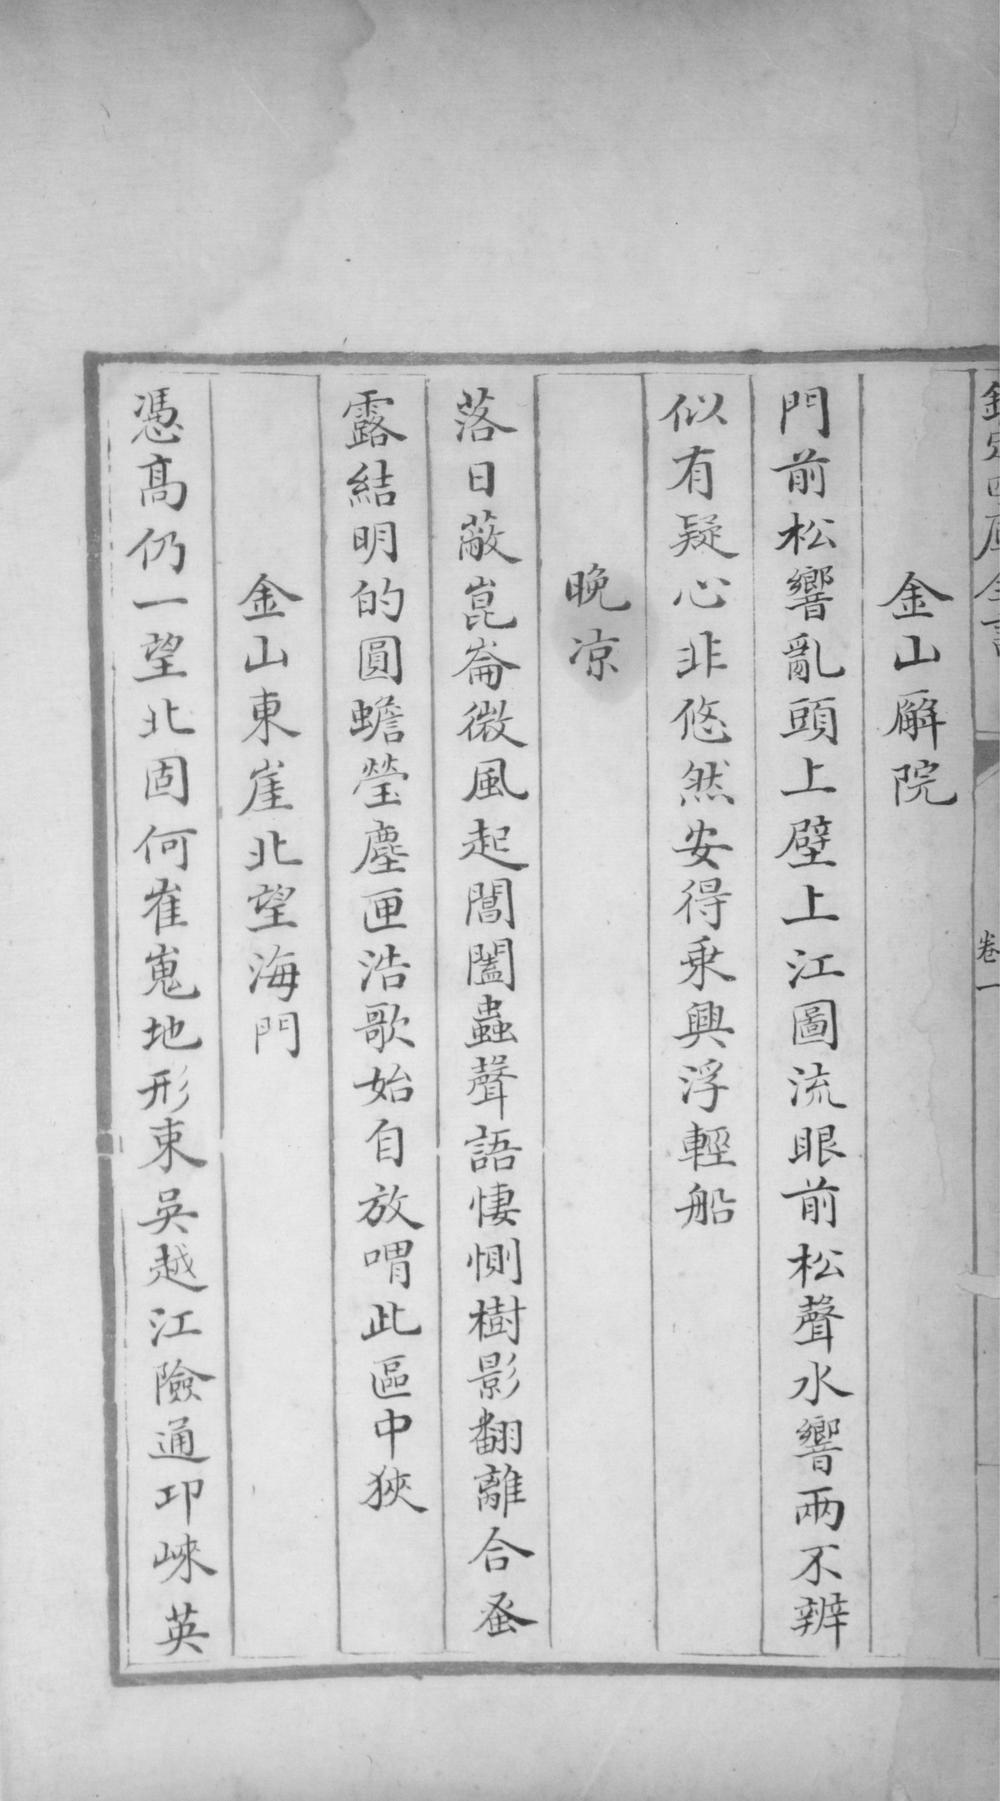 欽定四庫全書
卷一
金山廨院
門前松響亂頭上壁上江圖流眼前松聲水響兩不辨
似有疑心非悠然安得乗興浮輕船
晚凉
落日蔽崑崙微風起閶闔蟲聲語悽惻樹影翻離合蚤
露結明的圓蟾瑩塵匣浩歌始自放喟此區中狹
金山東崖北望海門
憑髙仍一望北固何崔嵬地形東吳越江險通卭崍英